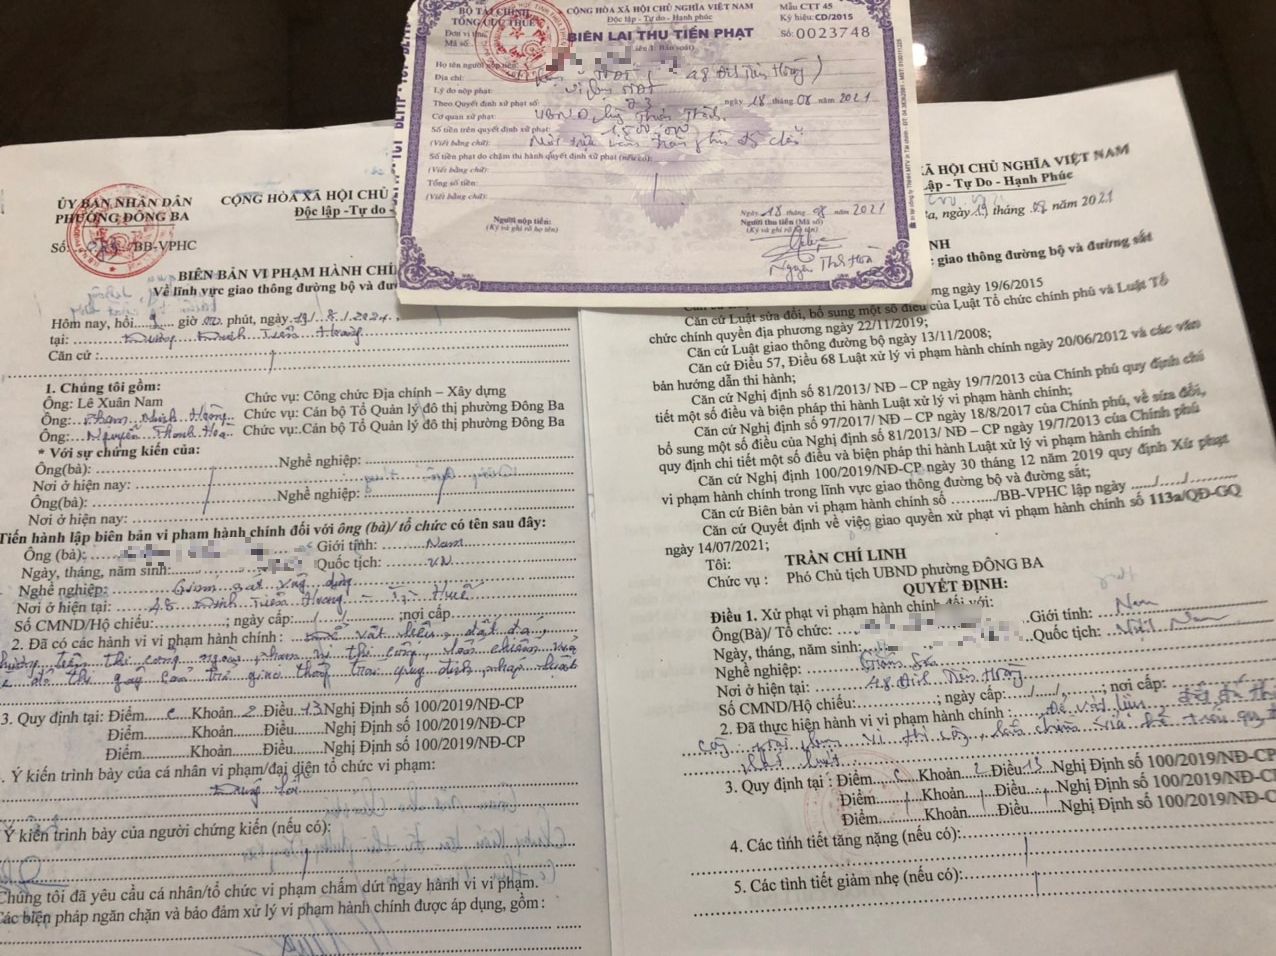 BỘ TÀI CHÍNH
TỔNG CỤC THUẾ
Đơn vị thu
Mã số:
CỘNG HÒA XÃ HỘI CHỦ NGHĨA VIỆT NAM
Độc lập - Tự do - Hạnh phúc
BIÊN LAI THU TIỀN PHẠT
Mẫu CTT 45
Ký hiệu: CD/2015
Số: 0023748
Họ tên người nộp tiền:
Địa chỉ: 48 Đinh Tiên Hoàng
Lý do nộp phạt:
Theo Quyết định xử phạt số: 23 ngày 18 tháng 08 năm 2021
Cơ quan xử phạt: UBND
Số tiền trên quyết định xử phạt: 1.500.000
(Viết bằng chữ):
Số tiền phạt do chậm thi hành quyết định xử phạt (nếu có):
(Viết bằng chữ):
Tổng số tiền:
(Viết bằng chữ):
Người nộp tiền:
(Ký và ghi rõ họ tên)
Ngày 18 tháng 08 năm 2021
Người thu tiền (Mã số)
(Ký và ghi rõ họ tên)
ỦY BAN NHÂN DÂN
PHƯỜNG ĐÔNG BA
Số: /BB-VPHC
CỘNG HÒA XÃ HỘI CHỦ
Độc lập - Tự do -
BIÊN BẢN VI PHẠM HÀNH CHÍ
Về lĩnh vực giao thông đường bộ và đư
Hôm nay, hồi giờ 00 phút, ngày
tại: Đường Đinh Tiên Hoàng
Căn cứ :
1. Chúng tôi gồm:
Ông: Lê Xuân Nam Chức vụ: Công chức Địa chính – Xây dựng
Ông: Chức vụ: Cán bộ Tổ Quản lý đô thị phường Đông Ba
Ông: Nguyễn Thanh Hoa Chức vụ: Cán bộ Tổ Quản lý đô thị phường Đông Ba
* Với sự chứng kiến của:
Ông(bà): Nghề nghiệp:
Nơi ở hiện nay:
Ông(bà): Nghề nghiệp:
Nơi ở hiện nay:
Tiến hành lập biên bản vi phạm hành chính đối với ông (bà)/ tổ chức có tên sau đây:
Ông (bà): Giới tính: Nam
Ngày, tháng, năm sinh: Quốc tịch: VN
Nghề nghiệp: Giám sát xây dựng
Nơi ở hiện tại: 48 Đinh Tiên Hoàng - Huế
Số CMND/Hộ chiếu: ; ngày cấp: / / , nơi cấp
2. Đã có các hành vi vi phạm hành chính : Để vật liệu, đất đá,
phương tiện thi công ngoài phạm vi thi công, lấn chiếm vỉa
hè đô thị gây cản trở giao thông trái quy định pháp luật
3. Quy định tại: Điểm c Khoản 2 Điều 13 Nghị Định số 100/2019/NĐ-CP
Điểm Khoản Điều Nghị Định số 100/2019/NĐ-CP
Điểm Khoản Điều Nghị Định số 100/2019/NĐ-CP
Ý kiến trình bày của cá nhân vi phạm/đại diện tổ chức vi phạm:
Ý kiến trình bày của người chứng kiến (nếu có):
Chúng tôi đã yêu cầu cá nhân/tổ chức vi phạm chấm dứt ngay hành vi vi phạm.
Các biện pháp ngăn chặn và bảo đảm xử lý vi phạm hành chính được áp dụng, gồm :
Ã HỘI CHỦ NGHĨA VIỆT NAM
Lập - Tự do - Hạnh Phúc
a, ngày 19 tháng 08 năm 2021
NH
c giao thông đường bộ và đường sắt
ương ngày 19/6/2015
Căn cứ Luật sửa đổi, bổ sung một số điều của Luật Tổ chức chính phủ và Luật Tổ
chức chính quyền địa phương ngày 22/11/2019;
Căn cứ Luật giao thông đường bộ ngày 13/11/2008;
Căn cứ Điều 57, Điều 68 Luật xử lý vi phạm hành chính ngày 20/06/2012 và các văn
bản hướng dẫn thi hành;
Căn cứ Nghị định số 81/2013/ NĐ – CP ngày 19/7/2013 của Chính phủ quy định chi
tiết một số điều và biện pháp thi hành Luật xử lý vi phạm hành chính;
Căn cứ Nghị định số 97/2017/ NĐ – CP ngày 18/8/2017 của Chính phủ, về sửa đổi,
bổ sung một số điều của Nghị định số 81/2013/ NĐ – CP ngày 19/7/2013 của Chính phủ
quy định chi tiết một số điều và biện pháp thi hành Luật xử lý vi phạm hành chính
Căn cứ Nghị định 100/2019/NĐ-CP ngày 30 tháng 12 năm 2019 quy định Xử phạt
vi phạm hành chính trong lĩnh vực giao thông đường bộ và đường sắt;
Căn cứ Biên bản vi phạm hành chính số /BB-VPHC lập ngày / /
Căn cứ Quyết định về việc giao quyền xử phạt vi phạm hành chính số 113a/QĐ-GQ
ngày 14/07/2021;
Tôi: TRẦN CHÍ LINH
Chức vụ : Phó Chủ tịch UBND phường ĐÔNG BA
QUYẾT ĐỊNH:
Điều 1. Xử phạt vi phạm hành chính đối với:
Ông(Bà)/ Tổ chức: Giới tính: Nam
Ngày, tháng, năm sinh: Quốc tịch: Việt Nam
Nghề nghiệp: Giám Sát
Nơi ở hiện tại: 48 Đinh Tiên Hoàng
Số CMND/Hộ chiếu: ; ngày cấp: / / , ; nơi cấp:
2. Đã thực hiện hành vi vi phạm hành chính : Để vật liệu, đất đá
3. Quy định tại : Điểm c Khoản 2 Điều 13 Nghị Định số 100/2019/NĐ-CP
Điểm Khoản Điều Nghị Định số 100/2019/NĐ-CP
Điểm Khoản Điều Nghị Định số 100/2019/NĐ-CP
4. Các tình tiết tăng nặng (nếu có):
5. Các tình tiết giảm nhẹ (nếu có):